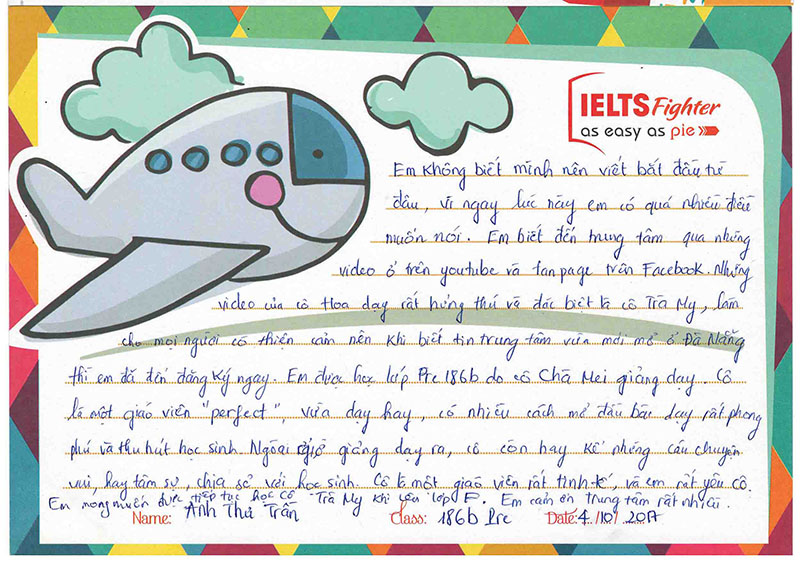 IELTS Fighter
as easy as pie
Em không biết mình nên viết bắt đầu từ
đâu, vì ngay lúc này em có quá nhiều điều
muốn nói. Em biết đến trung tâm qua những
video ở trên youtube và fanpage trên Facebook. Những
video của cô Hoa dạy rất hứng thú và đặc biệt là cô Trà My, làm
cho mọi người có thiện cảm nên khi biết tin trung tâm vừa mới mở ở Đà Nẵng
thì em đã đến đăng ký ngay. Em được học lớp Pre 186b do cô Chã Mei giảng dạy. Cô
là một giáo viên "perfect", vừa dạy hay, có nhiều cách mở đầu bài dạy rất phong
phú và thu hút học sinh. Ngoài giờ giảng dạy ra, cô còn hay kể những câu chuyện
vui, hay tâm sự, chia sẻ với học sinh. Cô là một giáo viên rất tinh tế, và em rất yêu cô.
Em mong muốn được tiếp tục học cô Trà My khi lớp F. Em cảm ơn trung tâm rất nhiều.
Name: Anh Thư Trần Class: 186b Pre Date: 4/10/2017